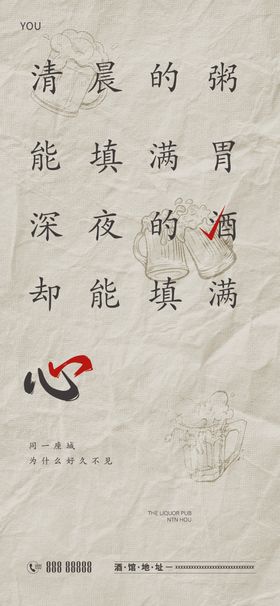 YOU
清晨的粥
能填满胃
深夜的酒
却能填满
心
同一座城
为什么好久不见
THE LIQUOR PUB
NTN HOU
888 88888
酒·馆·地·址